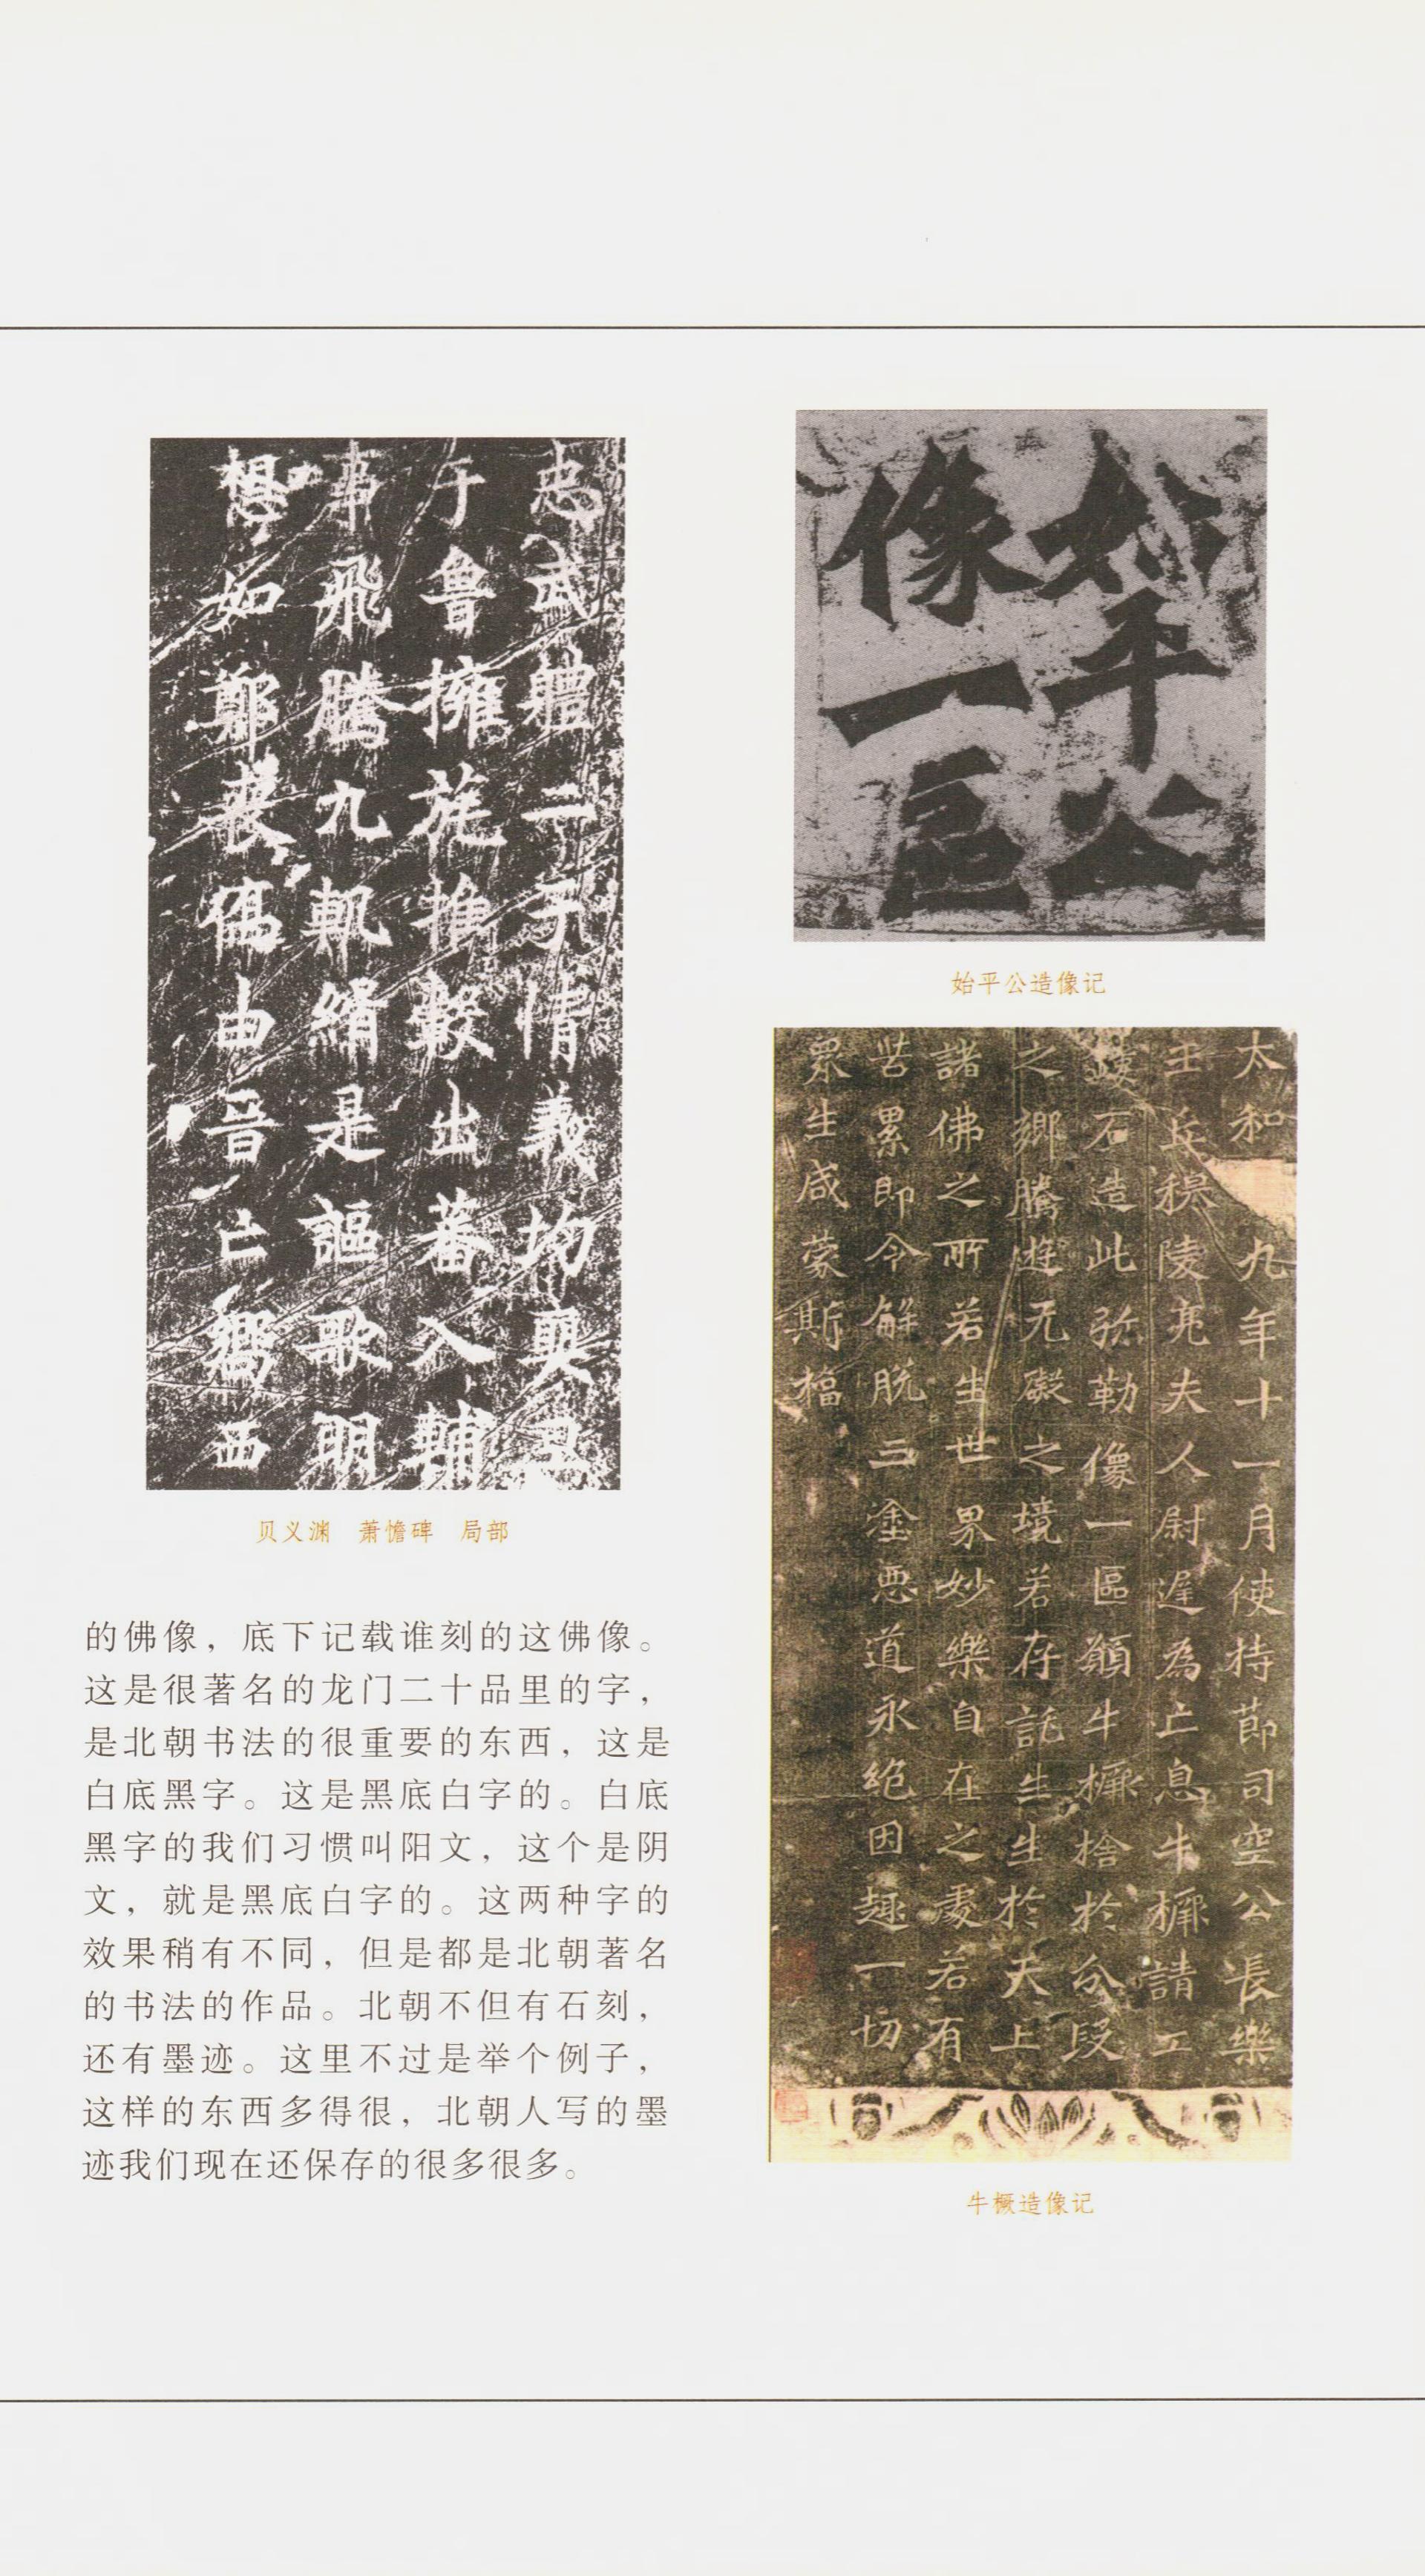 忠武體二情義均
于魯擁旄推轂出蕃入輔
事飛騰九軌緝是謳歌明
想如鄭由音亡嚮西
贝义渊 萧憺碑 局部
的佛像，底下记载谁刻的这佛像。
这是很著名的龙门二十品里的字，
是北朝书法的很重要的东西，这是
白底黑字。这是黑底白字的。白底
黑字的我们习惯叫阳文，这个是阴
文，就是黑底白字的。这两种字的
效果稍有不同，但是都是北朝著名
的书法的作品。北朝不但有石刻，
还有墨迹。这里不过是举个例子，
这样的东西多得很，北朝人写的墨
迹我们现在还保存的很多很多。
始平公
像一區
始平公造像记
太和九年十一月使持節司空公長樂
王丘穆陵亮夫人尉遲為亡息牛橛請工
鏤石造此弥勒像一區願牛橛捨於分段
之鄉騰遊无礙之境若存託生生於天上
諸佛之所若生世界妙樂自在之處若有
苦累即令解脱三塗惡道永絕因趣一切
眾生咸蒙斯福
牛橛造像记